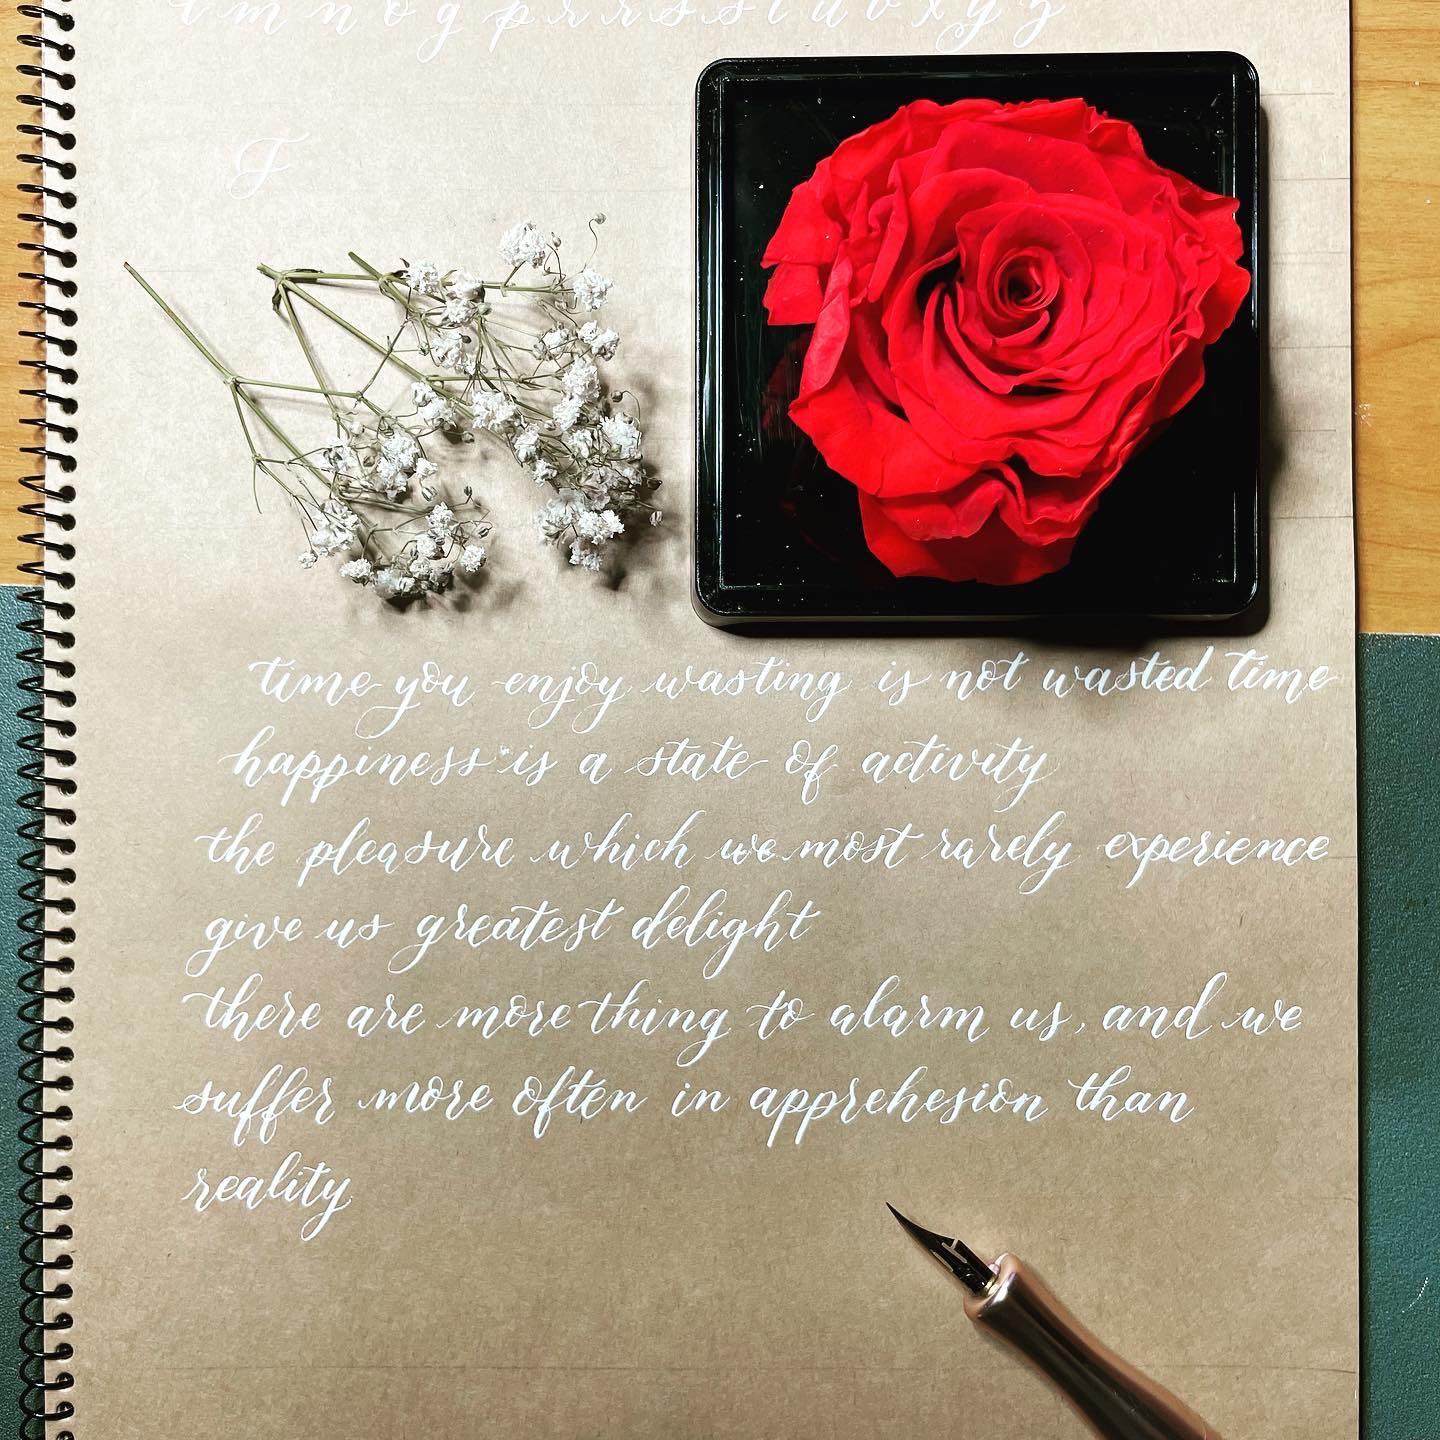 t m n o g p r r s s t u v x y z
F
time you enjoy wasting is not wasted time
happiness is a state of activity
the pleasure which we most rarely experience
give us greatest delight
there are more thing to alarm us, and we
suffer more often in apprehesion than
reality